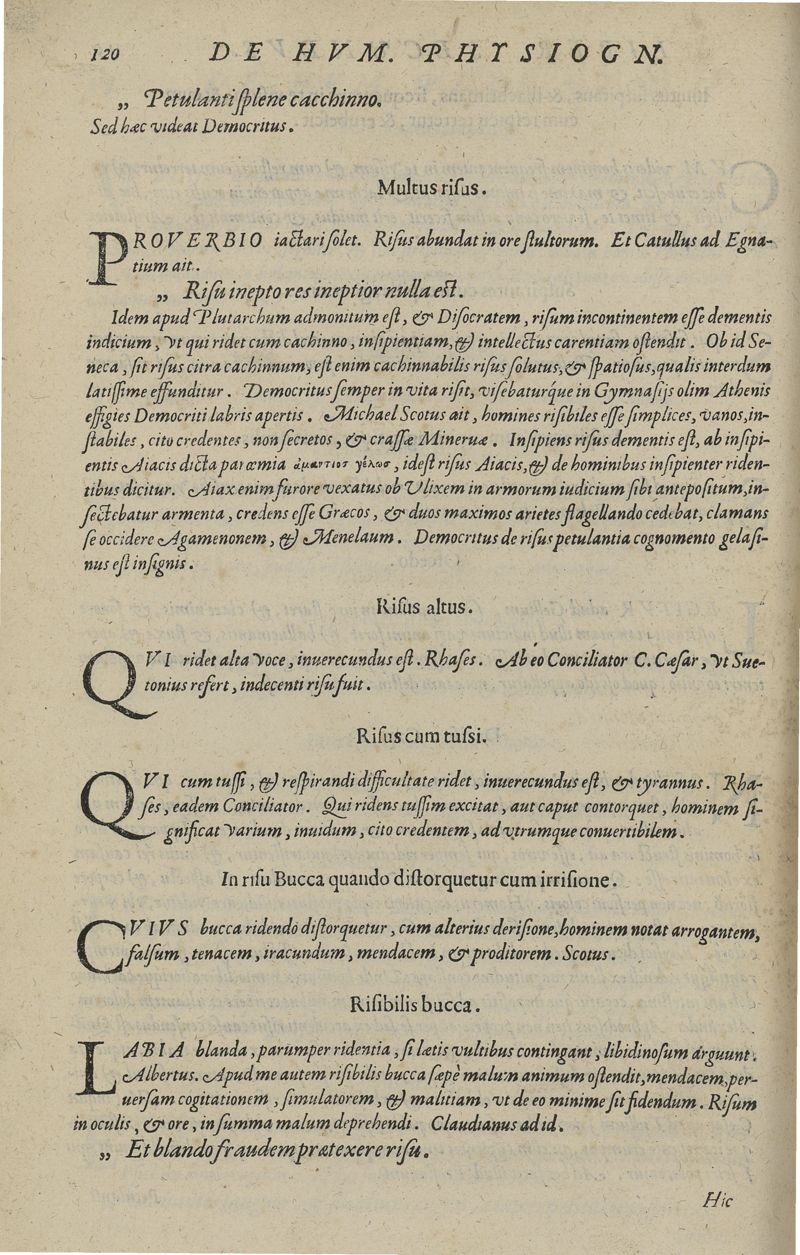 120 DE HVM. PHYSIOGN.
„ Petulanti splene cacchinno.
Sed hæc videat Democritus.
Multus risus.
PROVERBIO iactari solet. Risus abundat in ore stultorum. Et Catullus ad Egna-
tium ait.
„ Risu inepto res ineptior nulla est.
Idem apud Plutarchum admonitum est, & Disocratem, risum incontinentem esse dementis
indicium, vt qui ridet cum cachinno, insipientiam, & intellectus carentiam ostendit. Ob id Se-
neca, sit risus citra cachinnum, est enim cachinnabilis risus solutus, & spatiosus, qualis interdum
latissime effunditur. Democritus semper in vita risit, visebaturq́ue in Gymnasijs olim Athenis
effigies Democriti labris apertis. Michael Scotus ait, homines risibiles esse simplices, vanos, in-
stabiles, cito credentes, non secretos, & crassæ Mineruæ. Insipiens risus dementis est, ab insipi-
entis Aiacis dicta parœmia ἀμαντιος γέλως, idest risus Aiacis, & de hominibus insipienter riden-
tibus dicitur. Aiax enim furore vexatus ob Ulixem in armorum iudicium sibi antepositum, in-
sectebatur armenta, credens esse Græcos, & duos maximos arietes flagellando cedebat, clamans
se occidere Agamenonem, & Menelaum. Democritus de risus petulantia cognomento gelasi-
nus est insignis.
Risus altus.
QVI ridet alta voce, inuerecundus est. Rhases. Ab eo Conciliator C. Cæsar, vt Sue-
tonius refert, indecenti risu fuit.
Risus cum tussi.
QVI cum tussi, & respirandi difficultate ridet, inuerecundus est, & tyrannus. Rha-
ses, eadem Conciliator. Qui ridens tussim excitat, aut caput contorquet, hominem si-
gnificat varium, inuidum, cito credentem, ad vtrumque conuertibilem.
In risu Bucca quando distorquetur cum irrisione.
CVIVS bucca ridendo distorquetur, cum alterius derisione, hominem notat arrogantem,
falsum, tenacem, iracundum, mendacem, & proditorem. Scotus.
Risibilis bucca.
LABIA blanda, parumper ridentia, si lætis vultibus contingant, libidinosum arguunt.
Albertus. Apud me autem risibilis bucca sæpè malum animum ostendit, mendacem, per-
uersam cogitationem, simulatorem, & malitiam, vt de eo minime sit fidendum. Risum
in oculis, & ore, in summa malum deprehendi. Claudianus ad id.
„ Et blando fraudem prætexere risu.
Hic